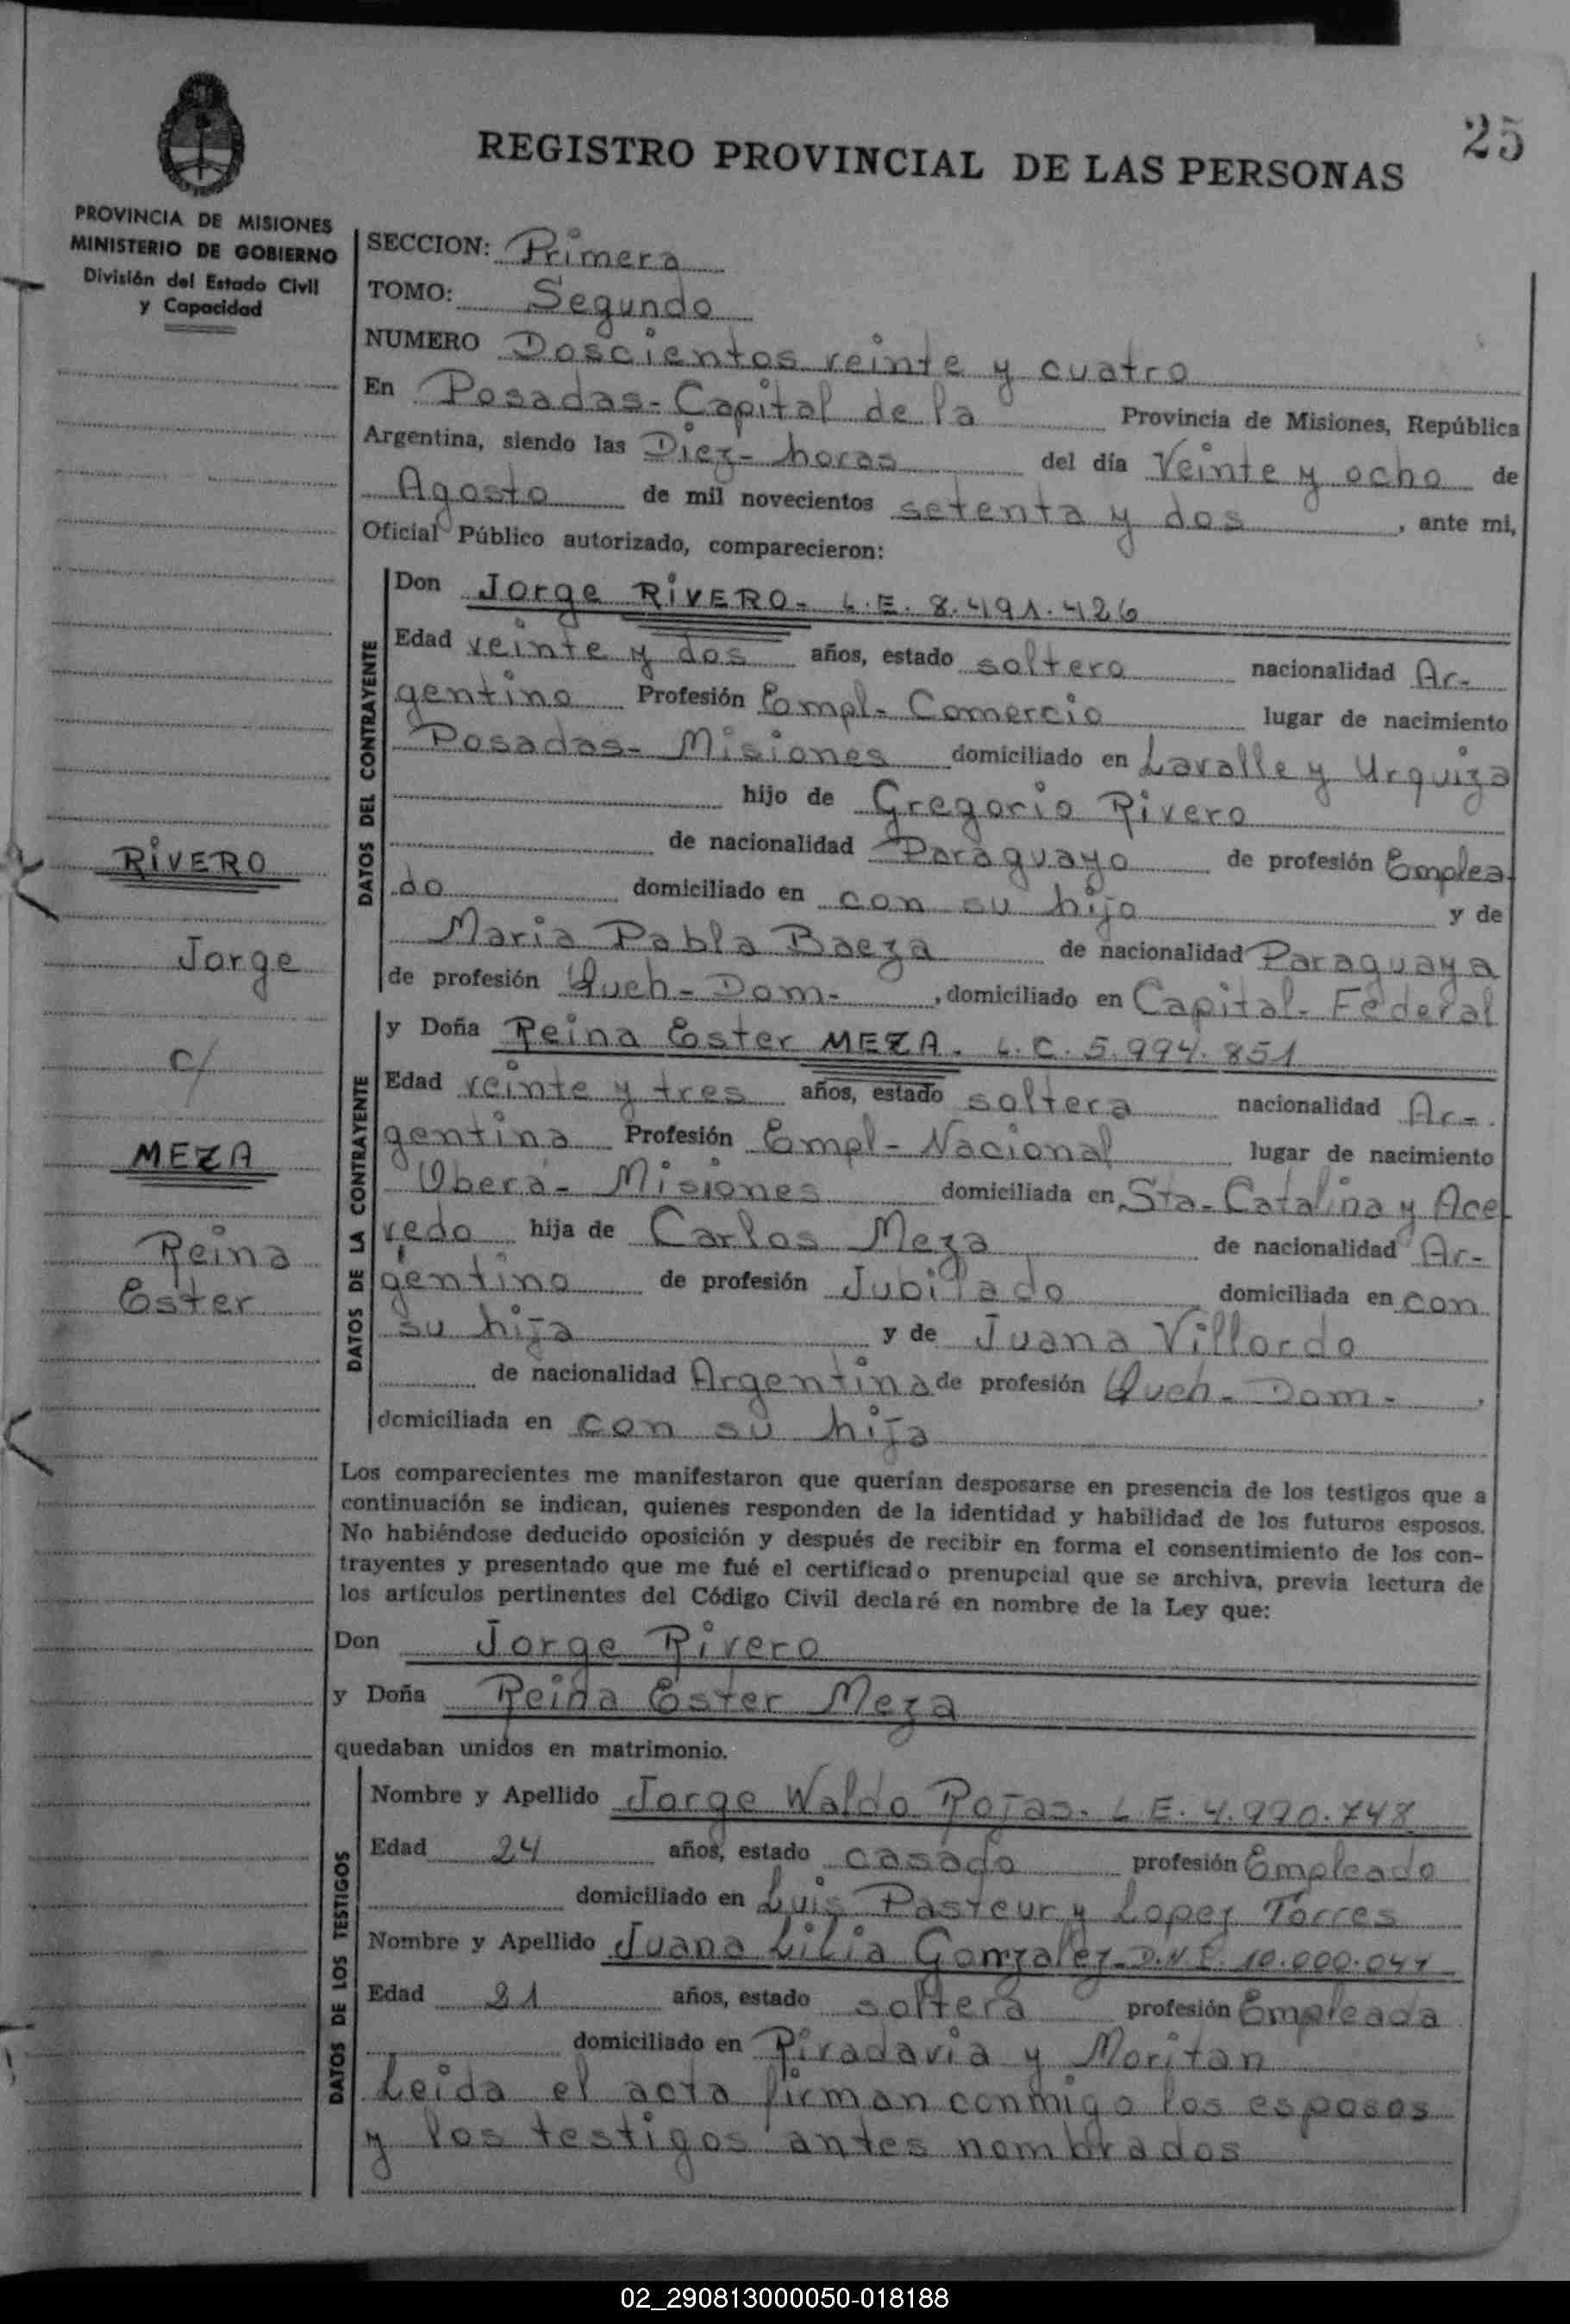 25
REGISTRO PROVINCIAL DE LAS PERSONAS
PROVINCIA DE MISIONES
MINISTERIO DE GOBIERNO
División del Estado Civil
y Capacidad
SECCION: Primera
TOMO: Segundo
NUMERO Doscientos veinte y cuatro
En Posadas - Capital de la Provincia de Misiones, República
Argentina, siendo las Diez - horas del día Veinte y ocho de
Agosto de mil novecientos setenta y dos, ante mi,
Oficial Público autorizado, comparecieron:
DATOS DEL CONTRAYENTE
Don Jorge RIVERO - L.E. 8.491.426
Edad veinte y dos años, estado soltero nacionalidad Ar-
gentino Profesión Empl- Comercio lugar de nacimiento
Posadas - Misiones domiciliado en Lavalle y Urquiza
hijo de Gregorio Rivero
de nacionalidad Paraguayo de profesión Emplea
do domiciliado en con su hijo y de
Maria Pabla Baeza de nacionalidad Paraguaya
de profesión Queh - Dom -, domiciliado en Capital - Federal
RIVERO
Jorge
c/
MEZA
Reina
Ester
DATOS DE LA CONTRAYENTE
y Doña Reina Ester MEZA - L.C. 5.994.851
Edad veinte y tres años, estado soltera nacionalidad Ar-
gentina Profesión Empl - Nacional lugar de nacimiento
Oberá - Misiones domiciliada en Sta - Catalina y Ace
vedo hija de Carlos Meza de nacionalidad Ar-
gentino de profesión Jubilado domiciliada en con
su hija y de Juana Villordo
de nacionalidad Argentina de profesión Queh - Dom -,
domiciliada en con su hija
Los comparecientes me manifestaron que querían desposarse en presencia de los testigos que a
continuación se indican, quienes responden de la identidad y habilidad de los futuros esposos.
No habiéndose deducido oposición y después de recibir en forma el consentimiento de los con-
trayentes y presentado que me fué el certificado prenupcial que se archiva, previa lectura de
los artículos pertinentes del Código Civil declaré en nombre de la Ley que:
Don Jorge Rivero
y Doña Reina Ester Meza
quedaban unidos en matrimonio.
DATOS DE LOS TESTIGOS
Nombre y Apellido Jorge Waldo Rojas - L.E. 4.990.748
Edad 24 años, estado casado profesión Empleado
domiciliado en Luis Pasteur y Lopez Torres
Nombre y Apellido Juana Lilia Gonzalez - D.N.I. 10.000.041
Edad 21 años, estado soltera profesión Empleada
domiciliado en Rivadavia y Moritan
Leida el acta firman conmigo los esposos
y los testigos antes nombrados
02_290813000050-018188